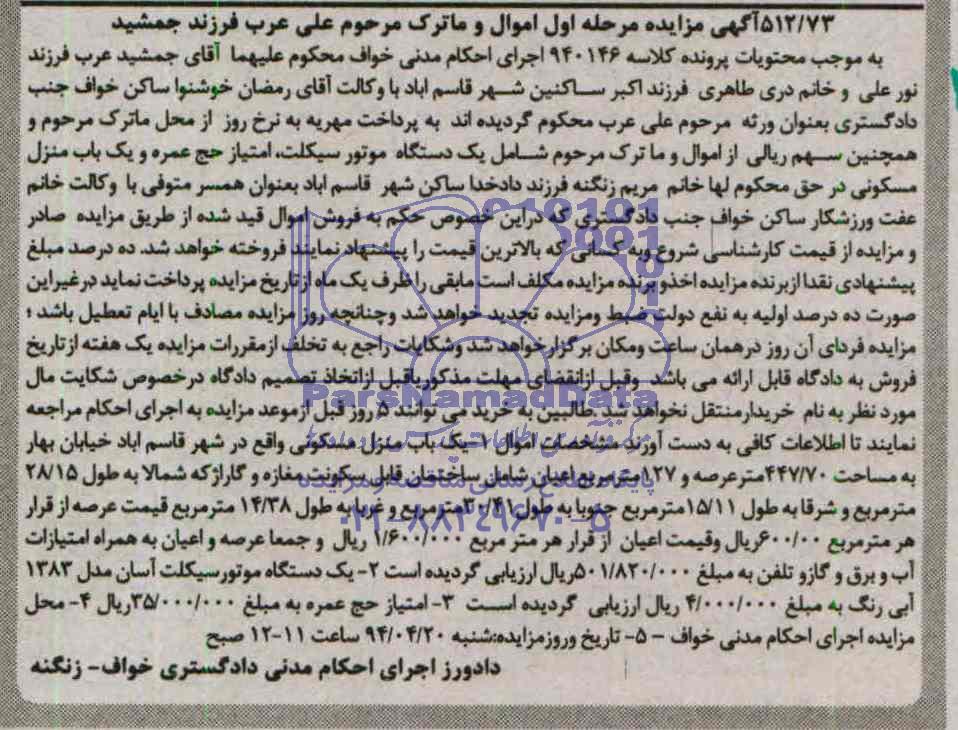 ۵۱۲/۷۳آگهی مزایده مرحله اول اموال و ماترک مرحوم علی عرب فرزند جمشید
به موجب محتویات پرونده کلاسه ۹۴۰۱۴۶ اجرای احکام مدنی خواف محکوم علیهما آقای جمشید عرب فرزند
نور علی و خانم دری طاهری فرزند اکبر ساکنین شهر قاسم اباد با وکالت آقای رمضان خوشنوا ساکن خواف جنب
دادگستری بعنوان ورثه مرحوم علی عرب محکوم گردیده اند به پرداخت مهریه به نرخ روز از محل ماترک مرحوم و
همچنین سهم ریالی از اموال و ما ترک مرحوم شامل یک دستگاه موتور سیکلت، امتیاز حج عمره و یک باب منزل
مسکونی در حق محکوم لها خانم مریم زنگنه فرزند دادخدا ساکن شهر قاسم اباد بعنوان همسر متوفی با وکالت خانم
عفت ورزشکار ساکن خواف جنب دادگستری که دراین خصوص حکم به فروش اموال قید شده از طریق مزایده صادر
و مزایده از قیمت کارشناسی شروع وبه کسانی که بالاترین قیمت را پیشنهاد نمایند فروخته خواهد شد. ده درصد مبلغ
پیشنهادی نقدا ازبرنده مزایده اخذو برنده مزایده مکلف است مابقی را ظرف یک ماه ازتاریخ مزایده پرداخت نماید درغیراین
صورت ده درصد اولیه به نفع دولت ضبط ومزایده تجدید خواهد شد وچنانچه روز مزایده مصادف با ایام تعطیل باشد ؛
مزایده فردای آن روز درهمان ساعت ومکان برگزارخواهد شد وشکایات راجع به تخلف ازمقررات مزایده یک هفته ازتاریخ
فروش به دادگاه قابل ارائه می باشد وقبل ازانقضای مهلت مذکوریاقبل ازاتخاذ تصمیم دادگاه درخصوص شکایت مال
مورد نظر به نام خریدارمنتقل نخواهد شد .طالبین به خرید می توانند ۵ روز قبل ازموعد مزایده به اجرای احکام مراجعه
نمایند تا اطلاعات کافی به دست آورند مشخصات اموال ۱-یک باب منزل مسکونی واقع در شهر قاسم اباد خیابان بهار
به مساحت ۴۴۷/۷۰مترعرصه و ۱۲۷مترمربع اعیان شامل ساختمان قابل سکونت مغازه و گاراژکه شمالا به طول ۲۸/۱۵
مترمربع و شرقا به طول ۱۵/۱۱مترمربع جنوبا به طول ۳۰/۴۱مترمربع و غربا به طول ۱۴/۳۸ مترمربع قیمت عرصه از قرار
هر مترمربع ۶۰۰/۰۰ریال وقیمت اعیان از قرار هر متر مربع ۱/۶۰۰/۰۰۰ ریال و جمعا عرصه و اعیان به همراه امتیازات
آب و برق و گازو تلفن به مبلغ ۵۰۱/۸۲۰/۰۰۰ریال ارزیابی گردیده است ۲- یک دستگاه موتورسیکلت آسان مدل ۱۳۸۳
آبی رنگ به مبلغ ۴/۰۰۰/۰۰۰ ریال ارزیابی گردیده است ۳- امتیاز حج عمره به مبلغ ۳۵/۰۰۰/۰۰۰ریال ۴- محل
مزایده اجرای احکام مدنی خواف - ۵- تاریخ وروزمزایده:شنبه ۹۴/۰۴/۲۰ ساعت ۱۱-۱۲ صبح
دادورز اجرای احکام مدنی دادگستری خواف- زنگنه
ParsNamadData
۰۲۱-۸۸۳۴۹۶۷۰-۵